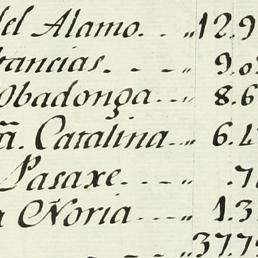 del Alamo. . . „12.9
tancias. . - - „ 9.0
obadonga... „ 8.6
ã. Catalina... „ 6.4
Pasaxe. - - - „ .7
a Noria - - - „ 1.3
„37.79